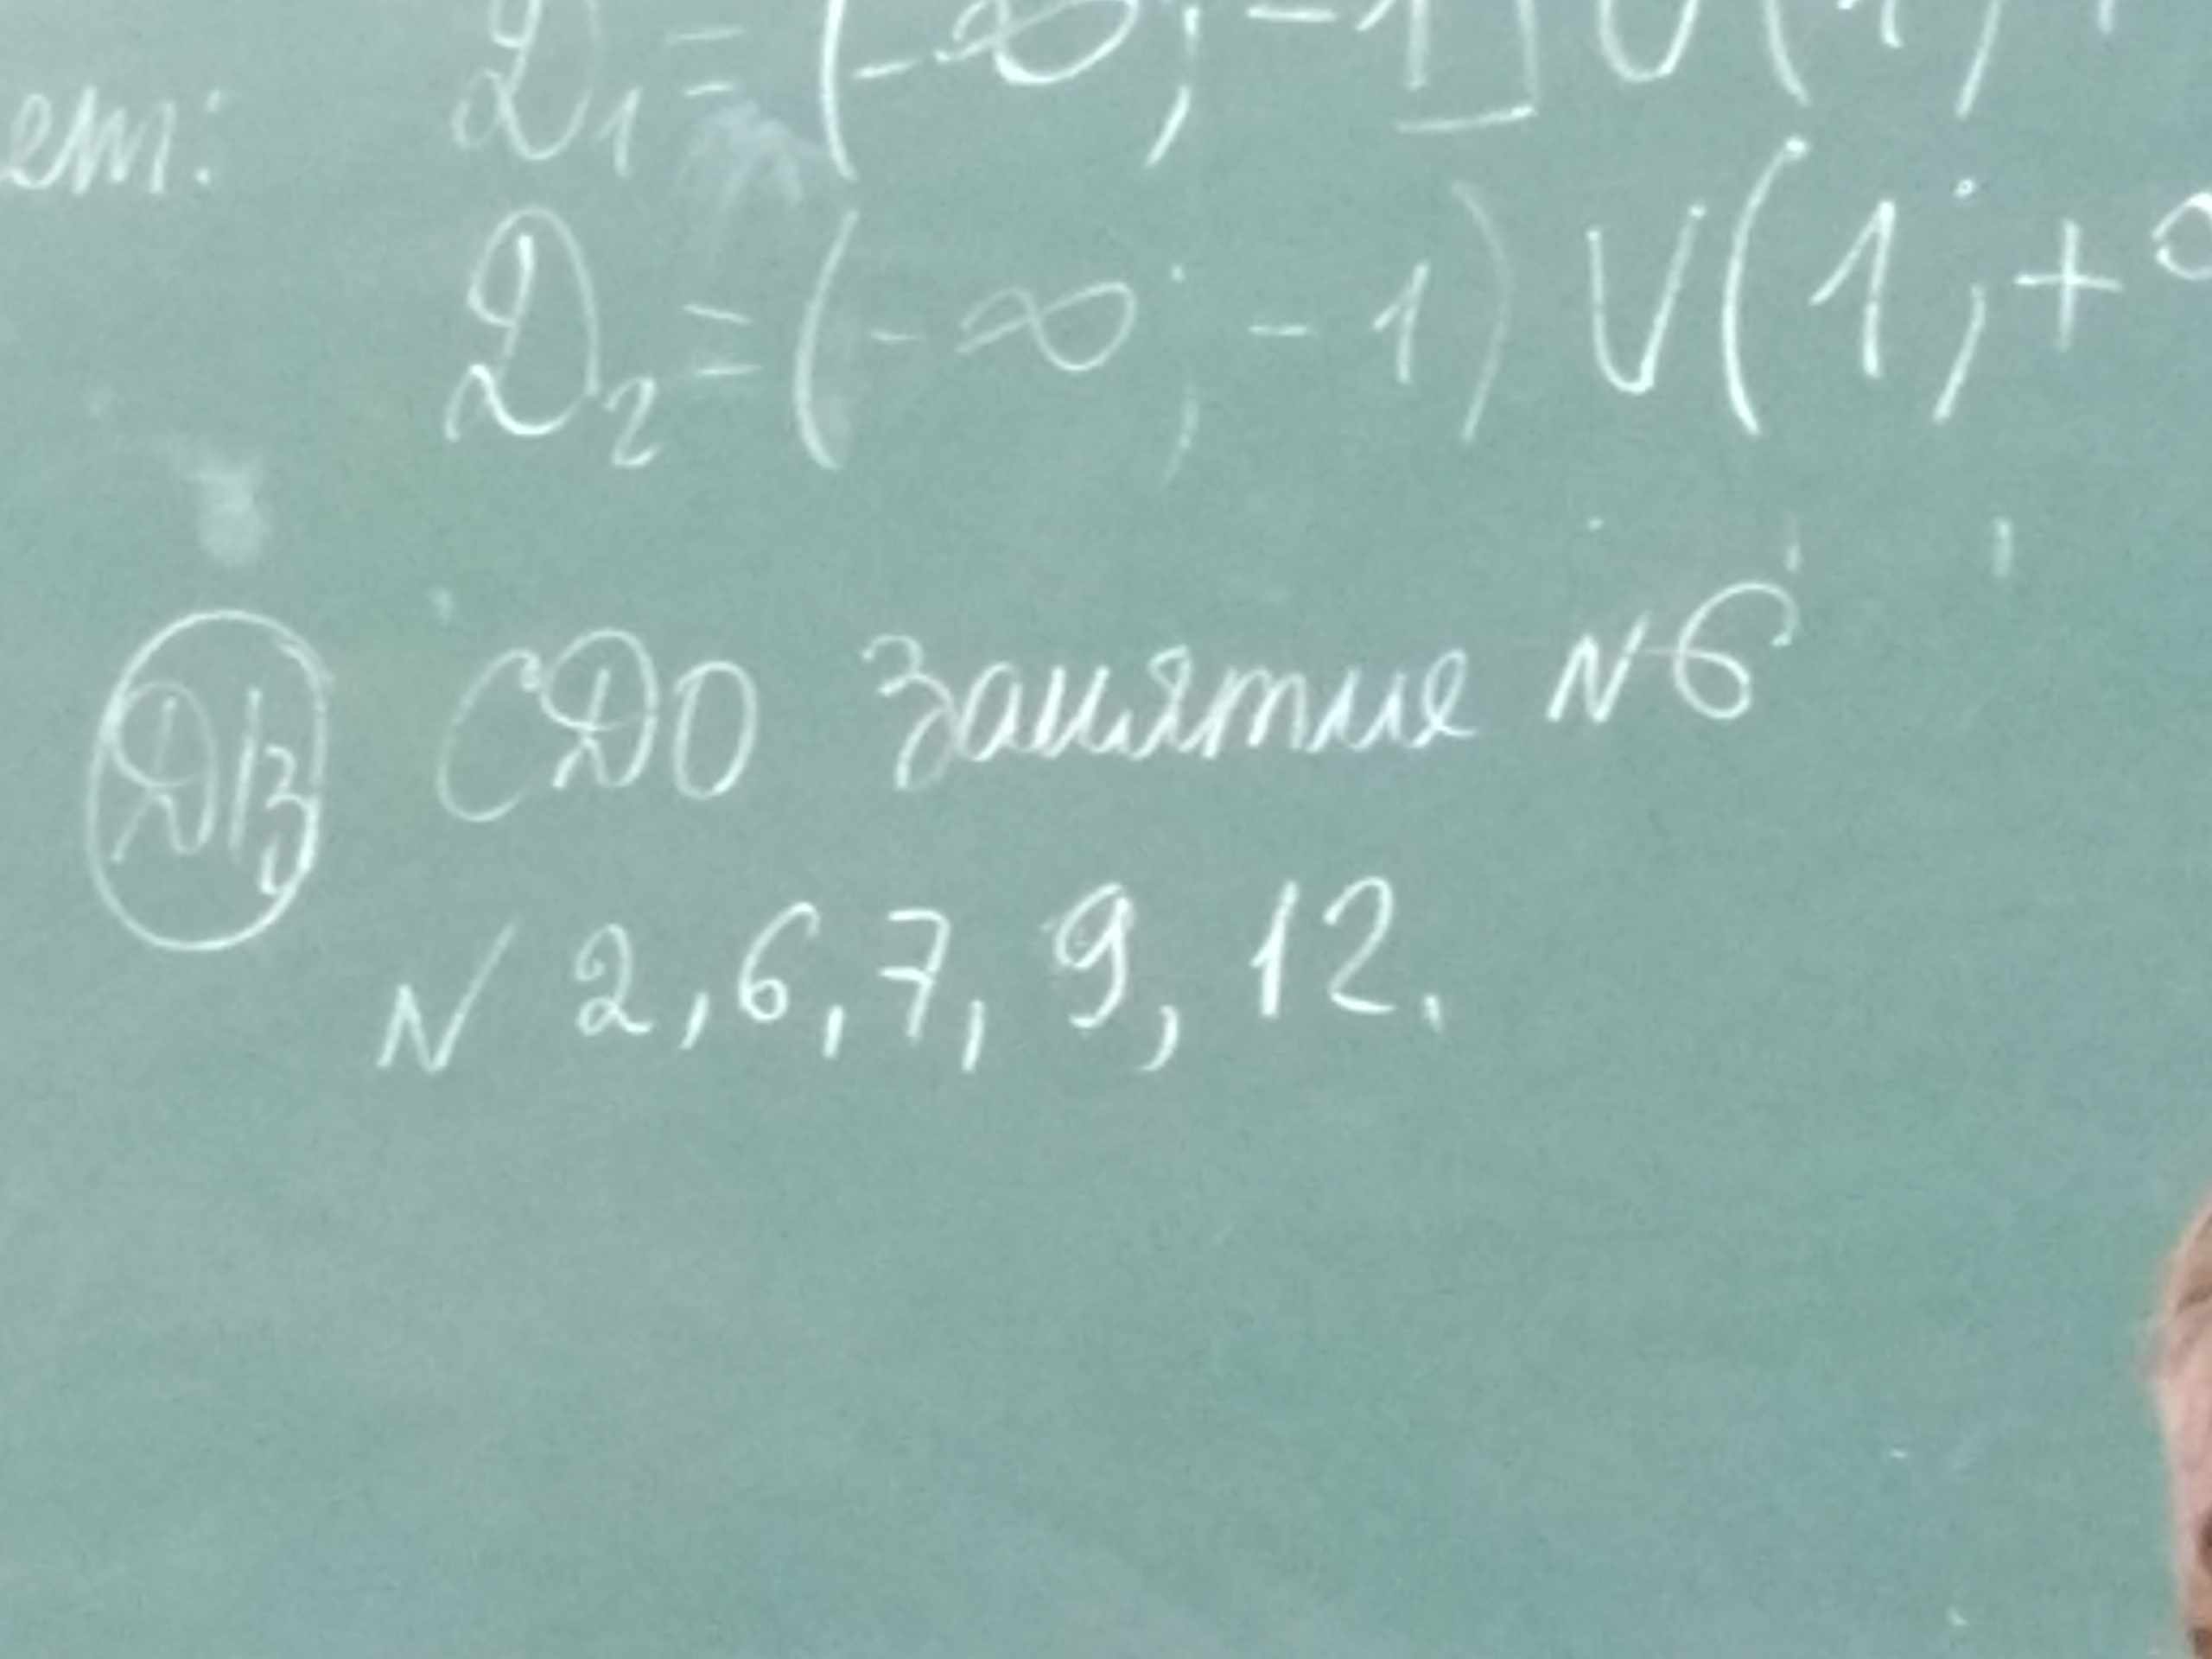 ет: D₁ = (-∞; -1] ∪ (1; +
D₂ = (-∞; -1) ∪ (1; +∞
Д/з СДО занятие №6
N 2, 6, 7, 9, 12.